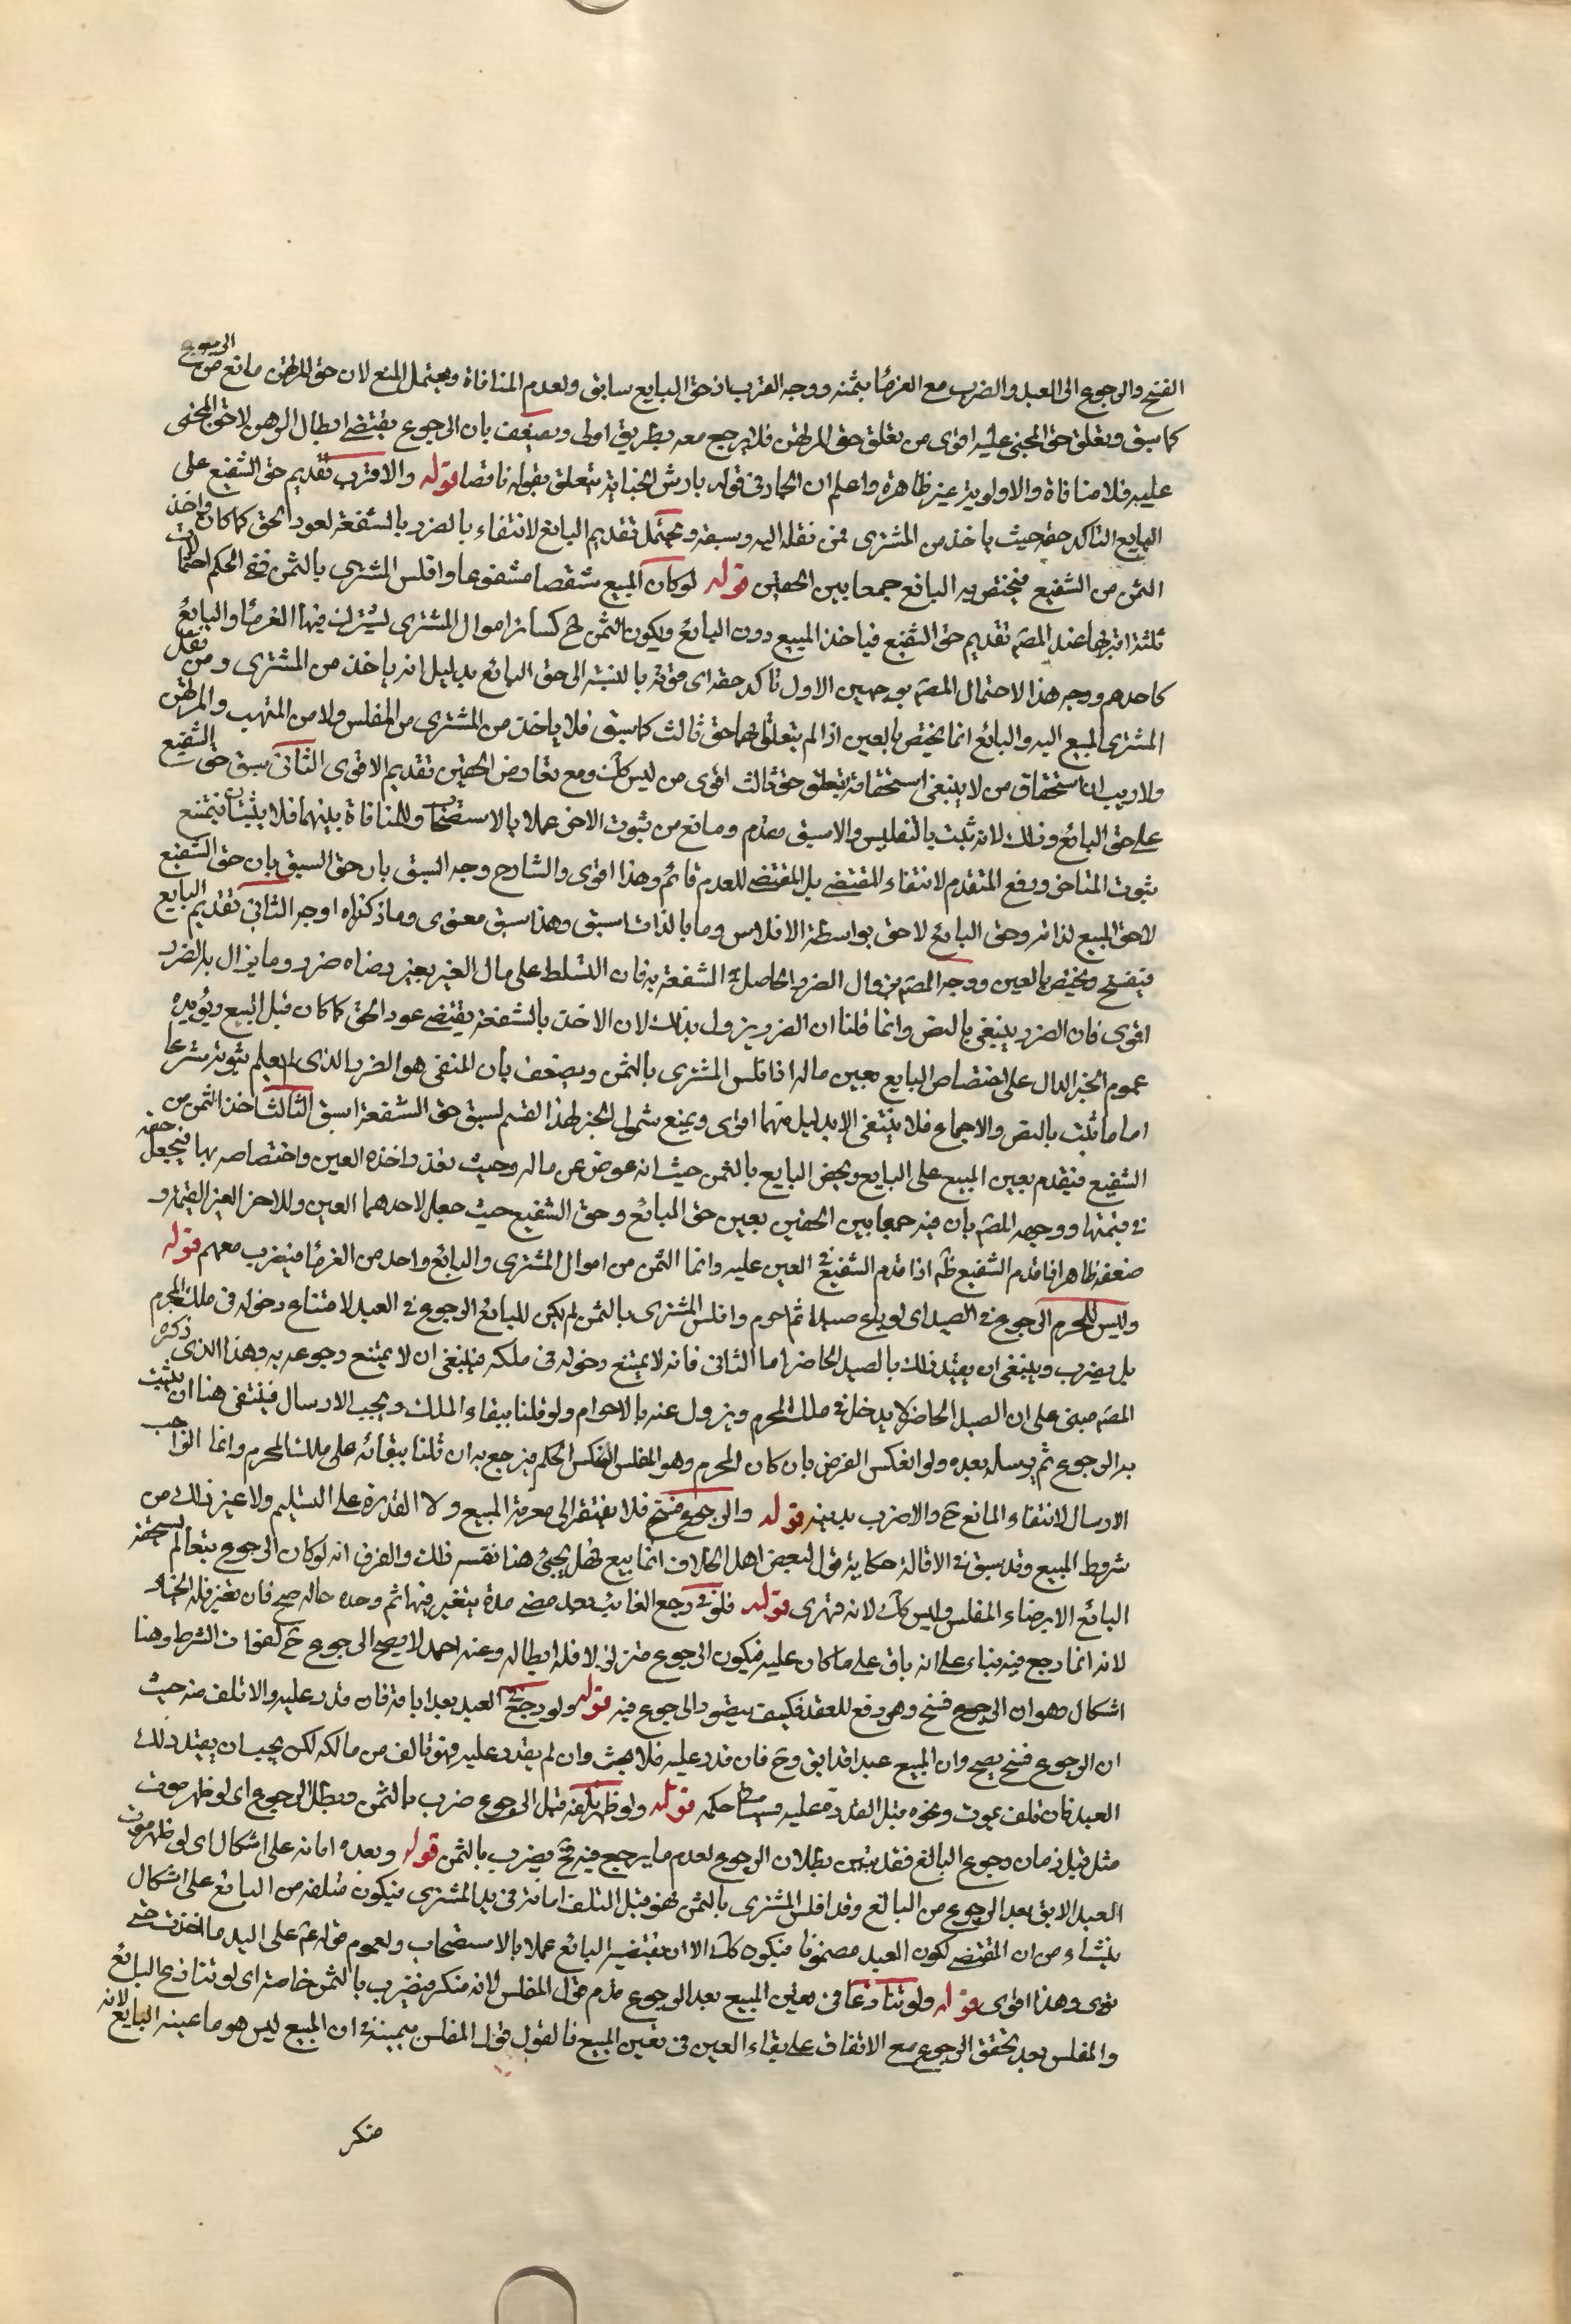 الفسخ والرجوع الى العبد والضرب مع الغرماء بثمنه ووجه القرب ان حق البايع سابق ولعدم المنافاة ويحتمل المنع لان حق المرتهن مانع من الرجوع
كما سبق وتعلق حق المجني عليه اقوى من تعلق حق المرتهن فلا يرجع معه بطريق اولى ويضعف بان الرجوع يقتضي ابطال الرهن لا حق المجني
عليه فلا منافاة والاولوية غير ظاهرة واعلم ان الجار في قوله بارش الجناية يتعلق بقوله ناقصا قوله والاقرب تقديم حق الشفيع على
البايع لتاكد حقه حيث ياخذ من المشتري ومن نقله اليه وسبقه ويحتمل تقديم البائع لانتفاء الضرر بالشفعة لعود الحق كما كان واخذ
الثمن من الشفيع فيختص به البائع جمعا بين الحقين قوله لو كان المبيع شقصا مشفوعا وافلس المشتري بالثمن ففي الحكم احتمالات
ثلثة اقربها عند المصنف تقديم حق الشفيع فياخذ المبيع دون البائع ويكون الثمن ح كسائر اموال المشتري يشترك فيها الغرماء والبائع
كاحدهم ووجه هذا الاحتمال المصنف بوجهين الاول تاكد حقه اي قوته بالنسبة الى حق البائع بدليل انه ياخذ من المشتري ومن نقل
المشتري المبيع اليه والبائع انما يختص بالعين اذا لم يتعلق بها حق ثالث كما سبق فلا ياخذ من المشتري من المفلس ولا من المتهب والمرتهن
ولا ريب ان استحقاق من لا ينبغي استحقاقه بتعلق حق ثالث اقوى من ليس كك ومع تعارض الحقين تقديم الاقوى الثاني سبق حق الشفيع
على حق البائع وذلك لانه ثبت بالتفليس والاسبق مقدم ومانع من ثبوت الاخر عملا بالاستصحاب وللمنافاة بينهما فلا يثبتان فيمتنع
ثبوت المتاخر ورفع المتقدم لانتفاء المقتضي بل المقتضي للعدم قائم وهذا اقوى والشارح وجه السبق بان حق السبق بان حق الشفيع
لاحق المبيع لذاته وحق البائع لاحق بواسطة الافلاس وما بالذات اسبق وهذا سبق معنوي وما ذكرناه اوجه الثاني تقديم البايع
فيفسخ ويختص بالعين ووجه المصنف بزوال الضرر الحاصل الشفعة به فان التسلط على مال الغير بغير رضاه ضرر وما يزال به الضرر
اقوى فان الضرر ينبغي بالنص وانما قلنا ان الضرر يزول بذلك لان الاخذ بالشفعة يقتضي عود الحق كما كان قبل البيع ويؤيده
عموم الخبر الدال على اختصاص البايع بعين ماله اذا فلس المشتري بالثمن ويضعف بان المنفي هو الضرر الذي لم يعلم ثبوته شرعا
اما ما ثبت بالنص والاجماع فلا ينتفي الا بدليل منهما اقوى ويمنع شمول الخبر لهذا القسم لسبق حق الشفعة اسبق الثالث اخذ الثمن من
الشفيع فيقدم بعين المبيع على البايع ويخص البايع بالثمن حيث انه عوض عن ماله وحيث تعذر اخذه العين واختصاصه بها فيجعل حقه
في قيمتها ووجهه المصنف بان فيه جمعا بين الحقين بعين حق البائع وحق الشفيع حيث جعل لاحدهما العين وللاخر العين القيمة و
ضعفه ظاهر اذا قدم الشفيع ظهر اذا قدم الشفيع في العين عليه وانما الثمن من اموال المشتري والبائع واحد من الغرماء فيضرب معهم قوله
وليس للمحرم الرجوع في الصيد اي لو باع صيدا ثم احرم وافلس المشتري بالثمن لم يكن للبائع الرجوع في العبد لامتناع دخوله في ملك المحرم
بل يضرب وينبغي ان يقيد ذلك بالصيد الحاضر اما الثاني فانه لا يمتنع دخوله في ملكه فينبغي ان لا يمتنع رجوعه به وهذا الذي ذكره
المصنف مبني على ان الصيد الحاضر لا يدخل في ملك المحرم ويزول عنه بالاحرام ولو قلنا ببقاء الملك ويجب الارسال فينتفى هنا ان يثبت
به الرجوع ثم يرسله بعده ولو انعكس الفرض بان كان المحرم وهو المفلس انعكس الحكم فيرجع به ان قلنا ببقائه على ملك المحرم وانما الواجب
الارسال لانتفاء المانع ح والا ضرب بدينه قوله والرجوع فسخ فلا يفتقر الى معرفة المبيع ولا القدرة على التسليم ولا غير ذلك من
شروط المبيع وقد سبق في الاقالة حكاية قول لبعض اهل الخلاف انها بيع فهل يجيء هنا نفسه ذلك والفرق انه لو كان الرجوع بيعا لم يستحقه
البائع الا برضاء المفلس وليس كك لانه قهري قوله فلو رجع في الغائب بعد مضي مدة يتغير فيها ثم وجده حاله صح فان تغير فله الخيار
لانه انما رجع فيه بناء على انه باق على ما كان عليه فيكون الرجوع متزلزلا فله ابطاله وعند احمد لا يصح الرجوع ح لفوات الشرط وهنا
اشكال وهو ان الرجوع فسخ وهو رفع للعقد فكيف يتصور الرجوع فيه قوله ولو رجع في العبد بعد اباقه فان قدر عليه والا تلف منه حيث
ان الرجوع فسخ يصح وان المبيع عبدا قد ابق وح فان قدر عليه فلا بحث وان لم يقدر عليه فهو تالف من مالكه لكن يجب ان يقيد ذلك
العبد فان تلف بموت ونحوه قبل القدرة عليه حكمه قوله ولو ظهر تلفه قبل الرجوع ضرب بالثمن وبطل الرجوع اي لو ظهر موت
مثل قبل زمان رجوع البائع فقد تبين بطلان الرجوع لعدم ما يرجع فيه فح يضرب بالثمن قوله وبعده امانة على اشكال اي لو ظهر موت
العبد الابق بعد الرجوع من البائع وقد افلس المشتري بالثمن فهو قبل التلف امانة في يد المشتري فيكون تلفه من البائع على اشكال
ينشاء من ان المقتضي لكون العبد مضمونا فيكون كك الا ان يقبضه البائع عملا بالاستصحاب ولعموم قوله ع على اليد ما اخذت حتى
تؤدي وهذا اقوى قوله ولو تنازعا في تعيين المبيع بعد الرجوع قدم قول المفلس لانه منكر فيضرب بالثمن خاصة اي لو تنازع البائع
والمفلس بعد تحقق الرجوع مع الاتفاق على بقاء العين في تعيين المبيع فالقول قول المفلس بيمينه في ان المبيع ليس هو ما عينه البايع لانه
منكر